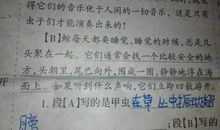 得它们的音乐优于人间的一切音乐,这是只有
虫子们才能演奏出来的!
【B】鲸每天都要睡觉,睡觉的时候,总是几
头聚在一起。它们通常会找一个比较安全的地
方,头朝里,尾巴向外,围成一圈,静静地浮在海
面上。如果听到什么声响,它们立即四散游开。
1. 段【A】写的是甲虫在草丛中振动翅
膀 ,段【B】写的